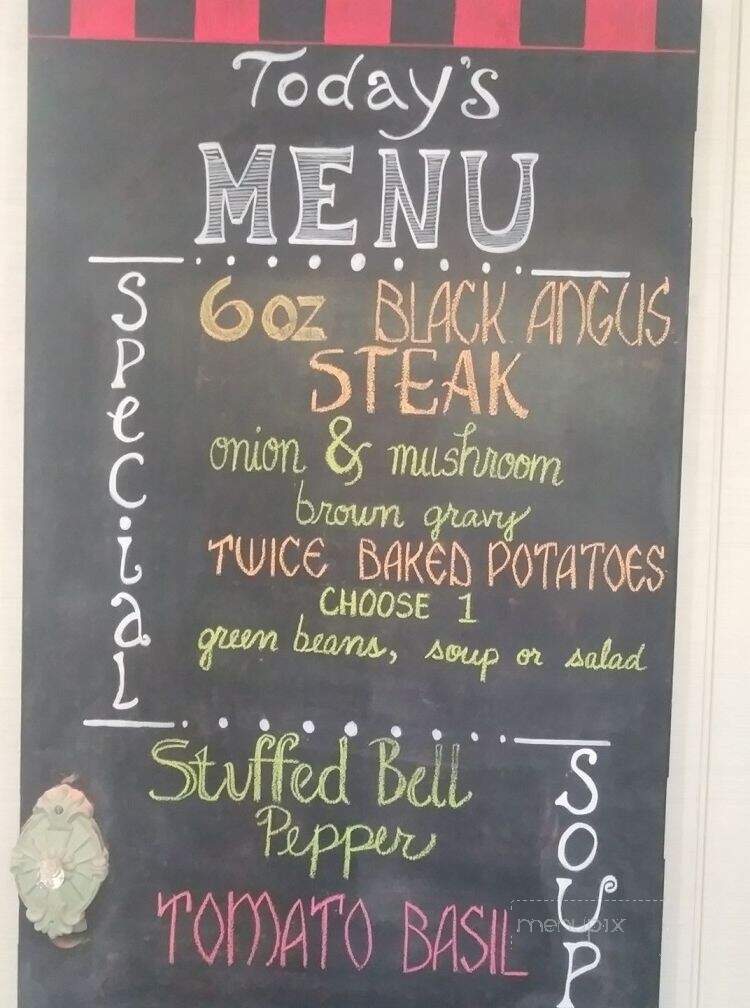 Today's
MENU
Special
6oz BLACK ANGUS
STEAK
onion & mushroom
brown gravy
TWICE BAKED POTATOES
CHOOSE 1
green beans, soup or salad
SOUP
Stuffed Bell
Pepper
TOMATO BASIL
menupix